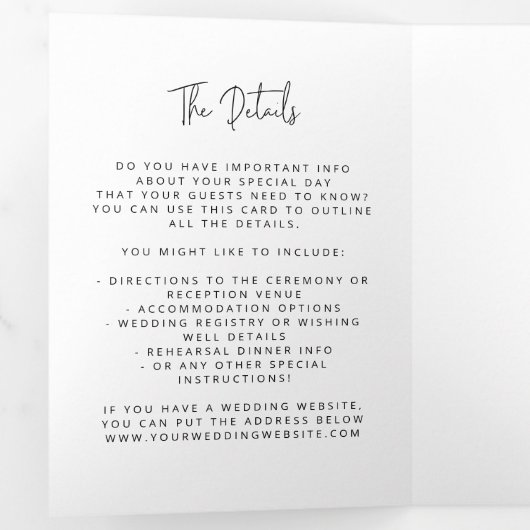 The Details
DO YOU HAVE IMPORTANT INFO
ABOUT YOUR SPECIAL DAY
THAT YOUR GUESTS NEED TO KNOW?
YOU CAN USE THIS CARD TO OUTLINE
ALL THE DETAILS.
YOU MIGHT LIKE TO INCLUDE:
- DIRECTIONS TO THE CEREMONY OR
RECEPTION VENUE
- ACCOMMODATION OPTIONS
- WEDDING REGISTRY OR WISHING
WELL DETAILS
- REHEARSAL DINNER INFO
- OR ANY OTHER SPECIAL
INSTRUCTIONS!
IF YOU HAVE A WEDDING WEBSITE,
YOU CAN PUT THE ADDRESS BELOW
WWW.YOURWEDDINGWEBSITE.COM